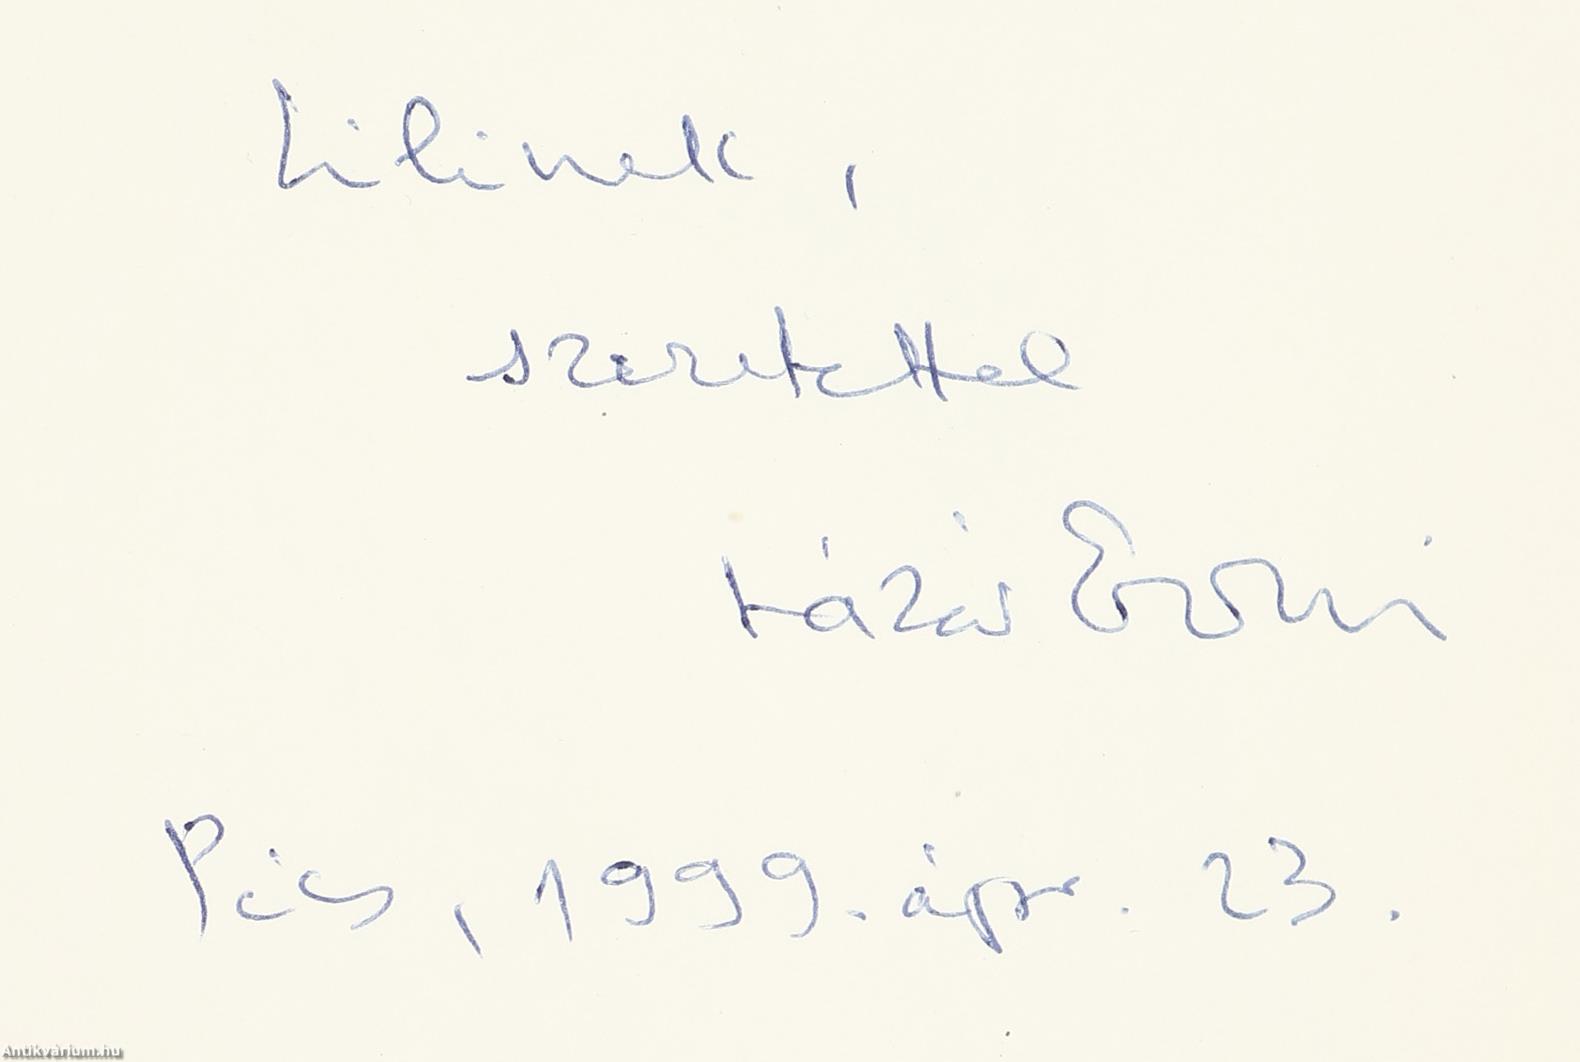 Lilinek,
szeretettel
Lázár Ervin
Pécs, 1999. ápr. 23.
Antikvárium.hu